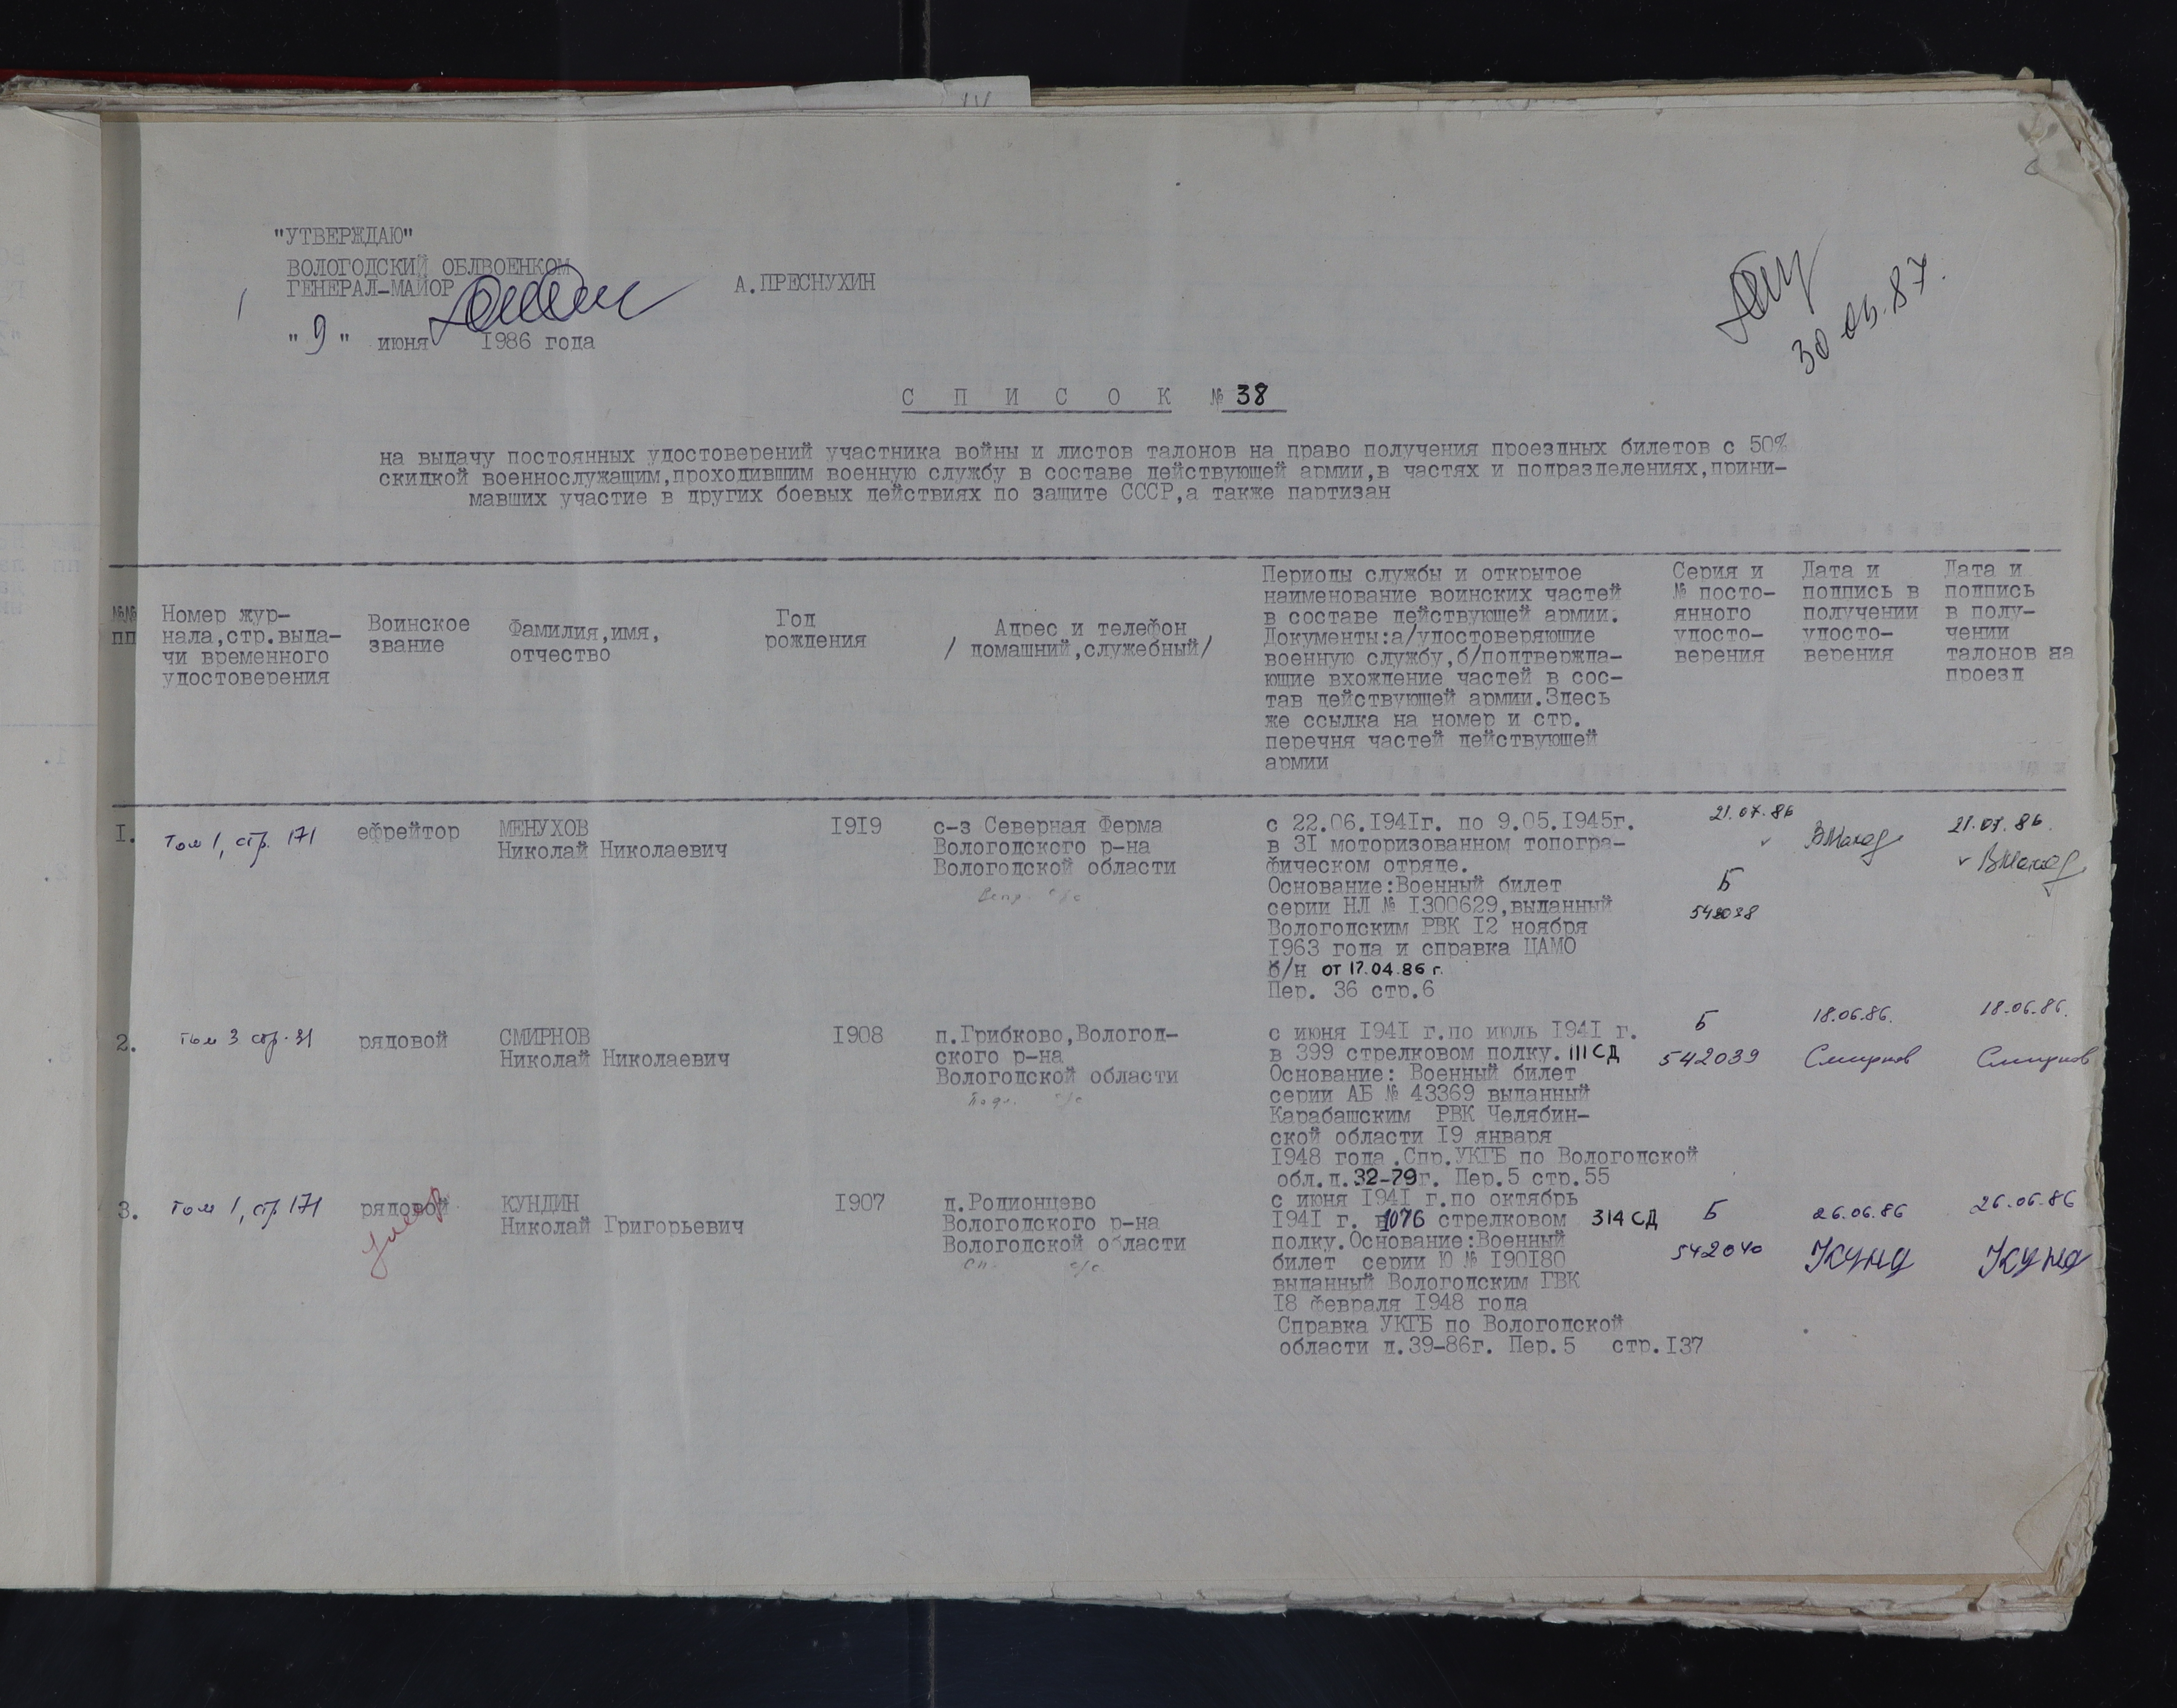 "УТВЕРЖДАЮ"
ВОЛОГОДСКИЙ ОБЛВОЕНКОМ
ГЕНЕРАЛ-МАЙОР А.ПРЕСНУХИН
"9" июня 1986 года
30.05.87.
СПИСОК № 38
на выдачу постоянных удостоверений участника войны и листов талонов на право получения проездных билетов с 50%
скидкой военнослужащим,проходившим военную службу в составе действующей армии,в частях и подразделениях,прини-
мавших участие в других боевых действиях по защите СССР,а также партизан
№№
пп
Номер жур-
нала,стр.выда-
чи временного
удостоверения
Воинское
звание
Фамилия,имя,
отчество
Год
рождения
Адрес и телефон
/ домашний,служебный/
Периоды службы и открытое
наименование воинских частей
в составе действующей армии.
Документы:а/удостоверяющие
военную службу,б/подтвержда-
ющие вхождение частей в сос-
тав действующей армии.Здесь
же ссылка на номер и стр.
перечня частей действующей
армии
Серия и
№ посто-
янного
удосто-
верения
Дата и
подпись в
получении
удосто-
верения
Дата и
подпись
в полу-
чении
талонов на
проезд
1.
Том 1, стр. 171
ефрейтор
МЕНУХОВ
Николай Николаевич
1919
с-з Северная Ферма
Вологодского р-на
Вологодской области
с/с
с 22.06.1941г. по 9.05.1945г.
в 31 моторизованном топогра-
фическом отряде.
Основание:Военный билет
серии НЛ № 1300629,выданный
Вологодским РВК 12 ноября
1963 года и справка ЦАМО
б/н от 17.04.86 г.
Пер. 36 стр.6
Б
542038
21.07.86
21.07.86.
2.
том 3 стр. 31
рядовой
СМИРНОВ
Николай Николаевич
1908
п.Грибково,Вологод-
ского р-на
Вологодской области
с/с
с июня 1941 г.по июль 1941 г.
в 399 стрелковом полку. 111 СД
Основание: Военный билет
серии АБ № 43369 выданный
Карабашским РВК Челябин-
ской области 19 января
1948 года.Спр.УКГБ по Вологодской
обл.д.32-79г. Пер.5 стр.55
Б
542039
18.06.86.
Смирнов
18.06.86.
Смирнов
3.
том 1, стр 171
рядовой
умер
КУНДИН
Николай Григорьевич
1907
д.Родионцево
Вологодского р-на
Вологодской области
с/с
с июня 1941 г.по октябрь
1941 г. в 1076 стрелковом 314 СД
полку.Основание:Военный
билет серии Ю № 190180
выданный Вологодским ГВК
18 февраля 1948 года
Справка УКГБ по Вологодской
области д.39-86г. Пер.5 стр.137
Б
542040
26.06.86
Кунд
26.06.86
Кунд